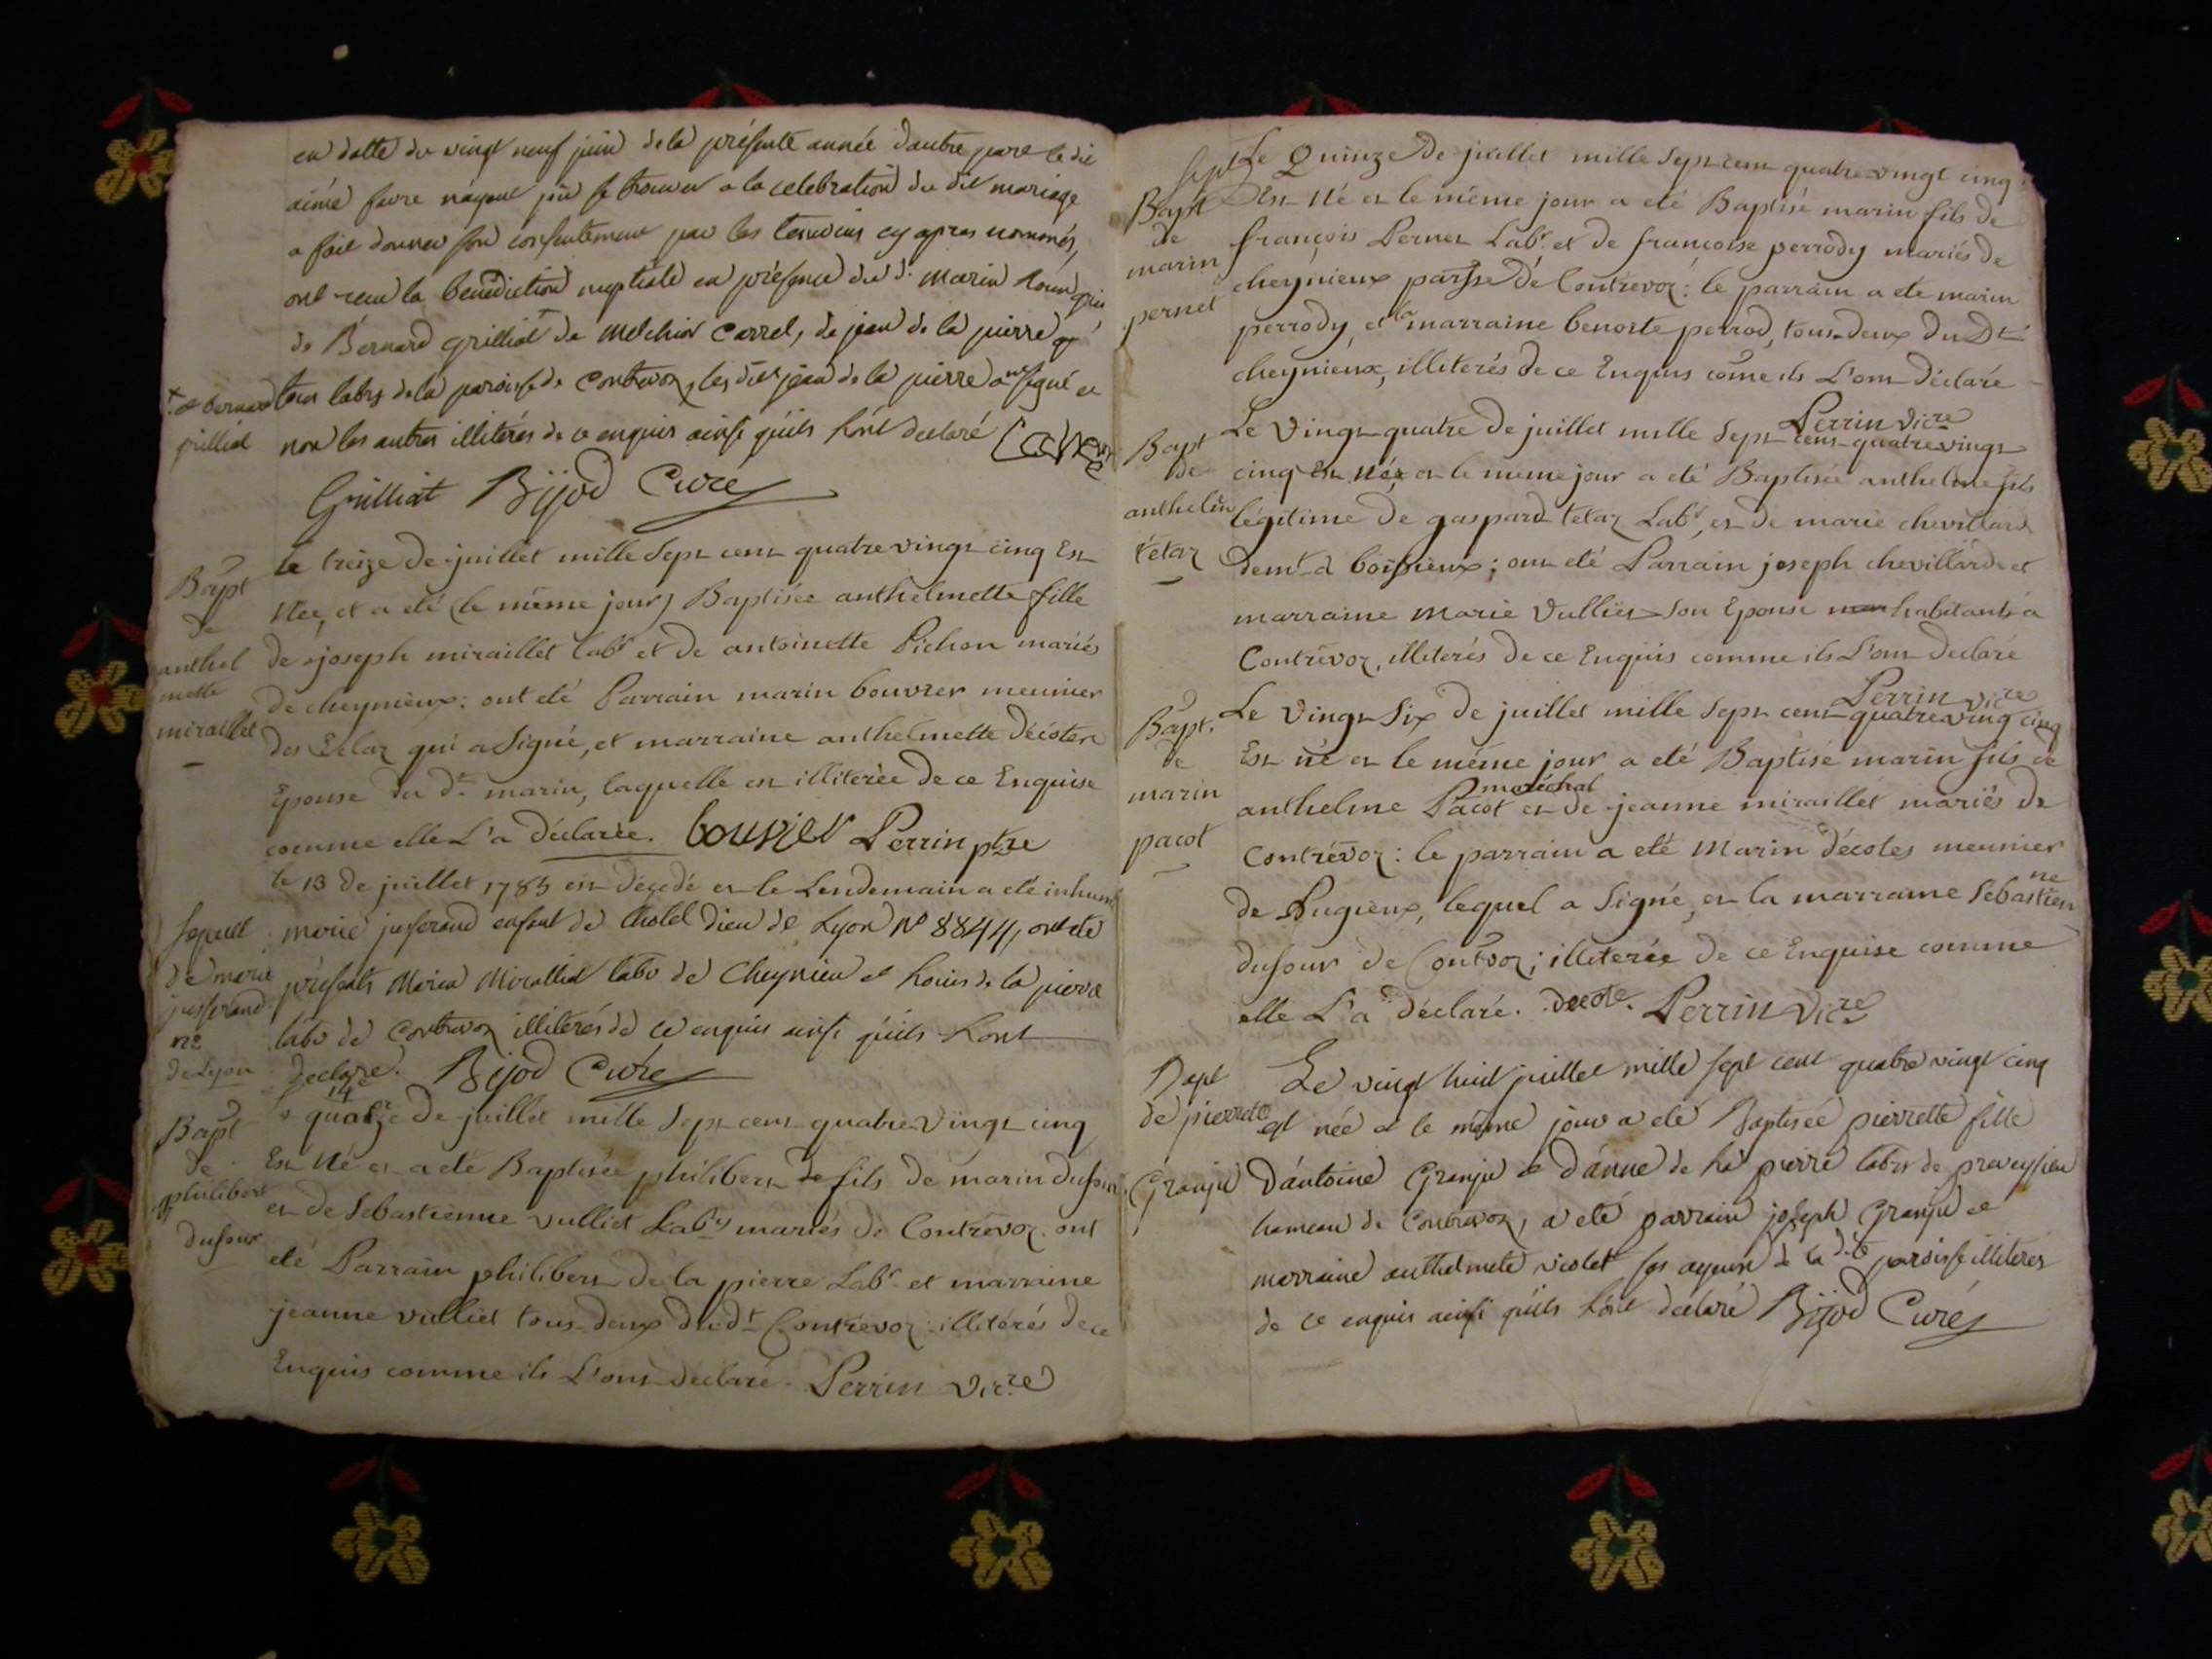 en datte du vingt neuf juin de la présente année d'autre part le dit
aimé favre n'ayant pû se trouver a la celebration du dit mariage
a fait donner son consentement par les temoins cy apres nommés,
ont recu la benediction nuptiale en présence du s.r marin
de Bernard grilliat de Melchior Carrel, de jean de la pierre
+ et bernard grilliat
tous labrs de la paroisse de Contrevoz, les dits jean de la pierre ont signé et
non les autres illitérés de ce enquis ainsi qu'ils l'ont declaré Carrel
Grilliat Bijod Curé
Bapt de anthelmette miraillet
Le treize de juillet mille Sept cent quatre vingt cinq Est
Née, et a été (le même jour) Baptisée anthelmette fille
de joseph miraillet labr et de antoinette Pichon mariés
de cheynieux: ont été Parrain marin bouvier meunier
des Eclaz qui a Signé, et marraine anthelmette Décoter
Epouse du dt marin, laquelle est illiterée de ce Enquise
comme elle L'a déclarée. bouvier Perrin ptre
Sepult de marie jusserand no de Lyon
le 13 de juillet 1785 est décédé et le Lendemain a été inhumé
marie jusserand enfant de l'hotel Dieu de Lyon No 8844, ont été
présents Marin Miraillet labr de Cheynieu et Louis de la pierre
labr de Contrevoz illitérés de ce enquis ainsi qu'ils l'ont
declaré. Bijod Curé
Bapt de philibert dufour
14
Le quatorze de juillet mille Sept cent quatre Vingt cinq
Est Né et a été Baptisée philibert fils de marin dufour
et de Sebastienne vulliet Labrs mariés de Contrévoz. ont
été Parrain philibert de la pierre Labr et marraine
jeanne vulliet tous deux dudt Contrevoz: illitérés de ce
Enquis comme ils L'ont déclaré. Perrin vicre
Bapt de marin pernet
Le Quinze de juillet mille Sept cent quatre vingt cinq
Est Né et le même jour a été Baptisé marin fils de
françois Pernet Labr. et de françoise perrody mariés de
cheynieux parsse de Contrevoz: le parrain a été marin
perrody, et la marraine benoite perrod, tous deux du Dt
cheynieux, illiterés de ce Enquis come ils L'ont Déclaré
Perrin vicre
Bapt de anthelm tétaz
Le Vingt quatre de juillet mille Sept cent quatre vingt
cinq Est Né et le meme jour a été Baptisée anthelme fils
légitime de gaspard tetaz Labr, et de marie chevillard
demt a boissieux; ont été Parrain joseph chevillard et
marraine Marie Vulliet Son Epouse habitants a
Contrévoz, illiterés de ce Enquis comme ils L'ont Declaré
Perrin vicre
Bapt. de marin pacot
Le Vingt Six de juillet mille Sept cent quatre ving cinq
Est né et le même jour a été Baptisé marin fils de
maréchal
anthelme Pacot et de jeanne miraillet mariés de
Contrévoz: le parrain a été Marin décotes meunier
de Pugieux, lequel a Signé, et la marraine Sebastienne
dufour de Contrvoz; illiterée de ce Enquise comme
elle L'a déclaré. decote. Perrin Vicre
Bapt de pierrette Granju
Le vingt huit juillet mille sept cent quatre vingt cinq
est née et le même jour a été Baptisée pierrette fille
D'antoine Granju et D'anne de la pierre labrs de preveyssieu
hameau de Contrevoz, a été parrain joseph Granju et
marraine anthelmete violet ses ayeux de la dite paroisse illiteres
de ce enquis ainsi qu'ils l'ont déclaré Bijod Curé